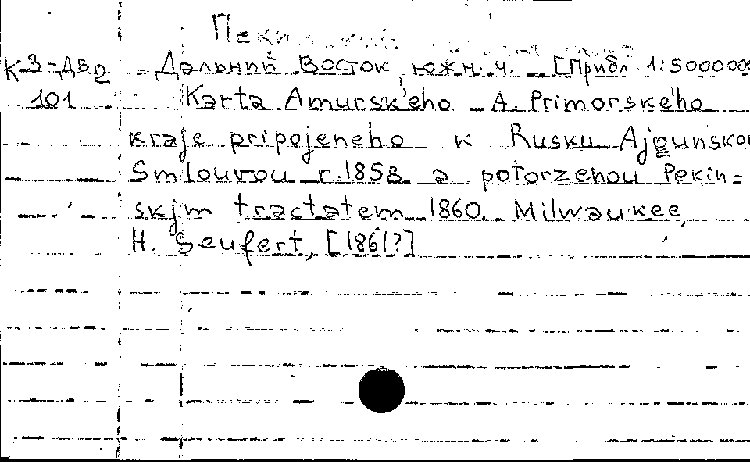 К3-ДВ2 Дальний Восток, южн.ч. [Прибл 1:5000000
101 Karta Amurskeho A. Primorskeho
kraje pripojeneho k Rusku Ajgunskou
Smlouvou r.1858 a potorzenou Pekin=
skjm tractatem 1860. Milwaukee,
H. Seufert, [1861?]